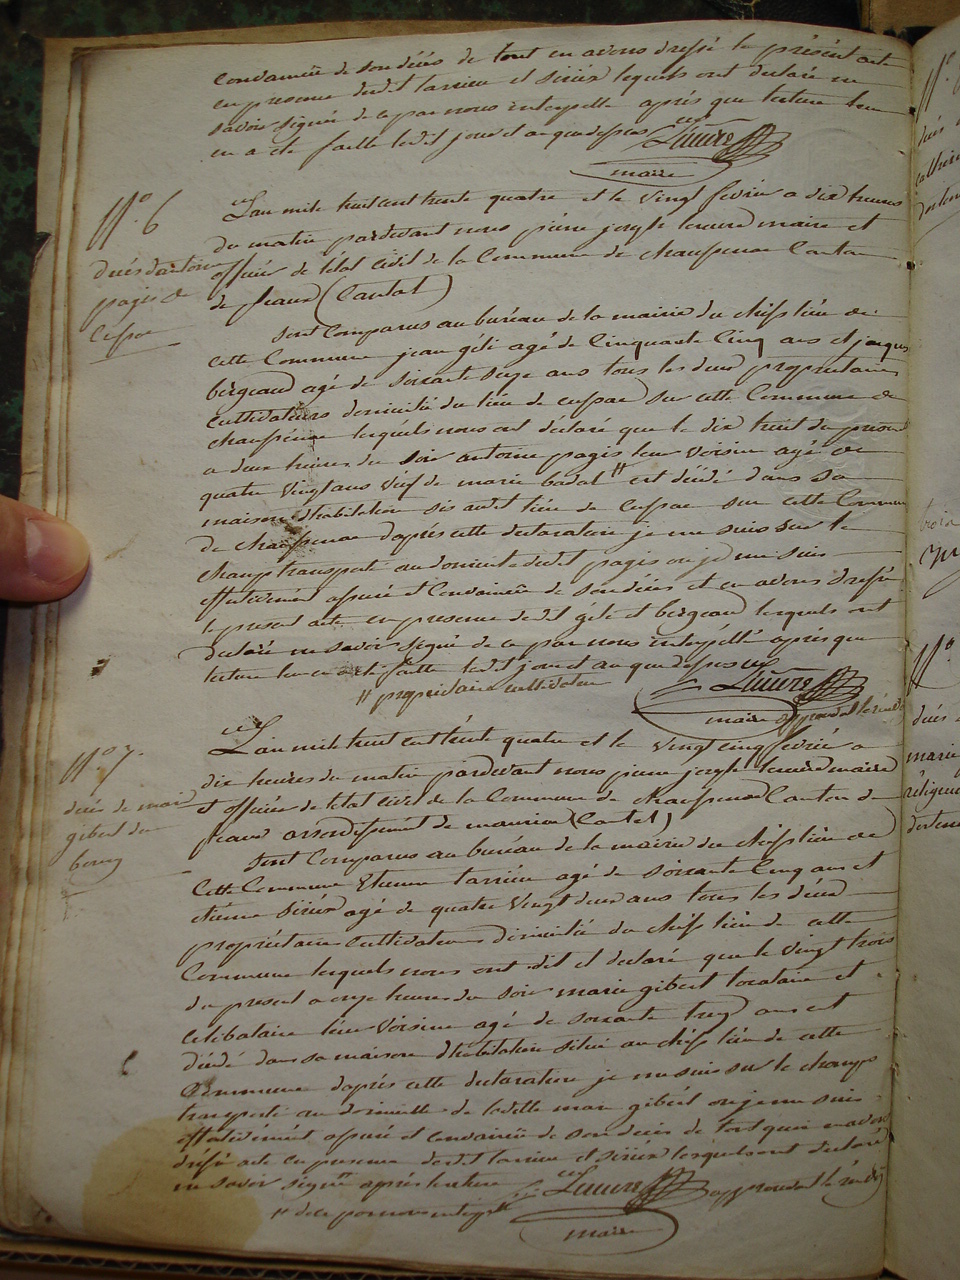 convaincu de son décès de tout en avons dressé le présent acte
en presence dudit tarrieu et siriex lequels ont declaré ne
savoir signée de ce par nous interpellé après que lecture leur
en a été faitte ledit jour et an que dessus
maire
N.º 6
décès d'antoine
pagis de
Cussac
L'an mile huit cent trente quatre et le vingt fevrier a dix heures
du matin pardevant nous pierre joseph maire et
officier de l'état civil de la Commune de chaussenac Canton
de pleaux (Cantal)
sont Comparus au buréau de la mairie du chéf lieu de
cette Commune jean géli agé de Cinquante Cinq ans et jacques
bergeaud agé de soixante seize ans tous les deux proprietaires
cultivateurs domicilié du lieu de cussac sur cette Commune de
chaussenac lequéls nous ont déclaré que le dix huit du présent
a deux heures du soir antoine pagis leur voisin agé de
quatre vingt ans véuf de marie badal # est décédé dans sa
maison d'habitation sis audit lieu de Cussac sur cette Commune
de chaussenac d'après cette declaration je me suis sur le
champ transporté au domicile dudit pagis ou je me suis
effectivement assuré et Convaincu de son décès et en avons dréssé
le present acte en presence dudit géli et bergeaud lesquels ont
declaré ne savoir signé de ce par nous interpéllé après que
lecture leur en a été faitte ledit jour et an que dessus
# propriétaire cultivateur
maire approuvant le renvoi
N.º 7.
décès de marie
gibert du
bourg
L'an mile huit cent trente quatre et le vingt cinq févriér a
dix heures du matin pardevant nous pierre joseph maire
et officier de l'état civil de la Commune de chaussenac Canton de
pleaux arrondissement de mauriac (Cantal)
sont Comparus au buréau de la mairie du chéf lieu de
Cette Commune Etienne tarrieu agé de soixante Cinq ans et
étienne siriex agé de quatre vingt deux ans tous les déux
propriétaires Cultivateurs domicilié du chéf lieu de cette
Commune lequéls nous ont dit et déclaré que le vingt trois
du present a onze heures du soir marie gibert locataire et
célibataire leur voisine agé de soixante treize ans est
décédé dans sa maison d'habitation située au chéf lieu de cette
Commune d'après cette declaration je me suis sur le champs
transporté au domicille de ladite marie gibert ou je me suis
éffectivement assuré et convaincu de son décès de tout quoi en avons
dréssé acte en presence dudit tarrieu et siriéx lesquels ont declaré
ne savoir signér après lecture # approuvant le renvoi
# de ce par nous interpellé
maire